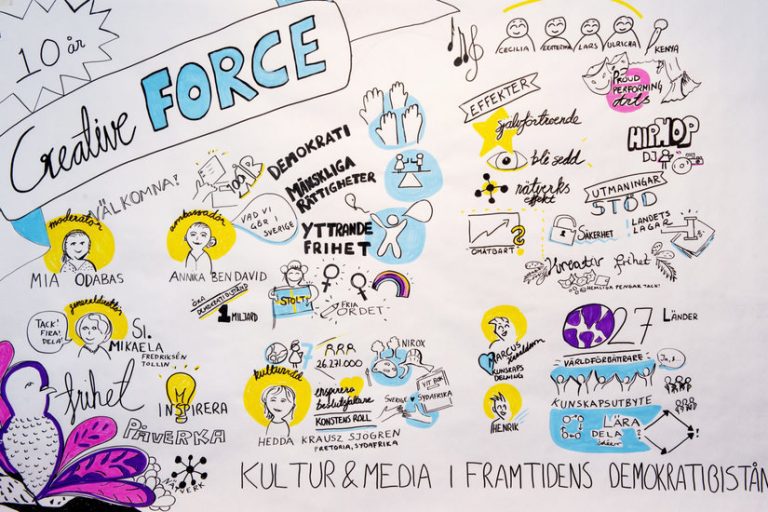 10 år
Creative FORCE
VÄLKOMNA!
moderator
MIA ODABAS
ambassadör
ANNIKA BEN DAVID
VAD VI
GÖR I
SVERIGE
DEMOKRATI
MÄNSKLIGA
RÄTTIGHETER
YTTRANDE
FRIHET
ÖKA
1 MILJARD
STOLT!
FRIA
ORDET
TACK!
FIRA!
DELA!
SI.
MIKAELA
FREDRIKSÉN
TOLLIN
frihet
INSPIRERA
PÅVERKA
NÄTVERK
kulturråd
HEDDA KRAUSZ SJÖGREN
PRETORIA, SYDAFRIKA
26.271.000
inspirera
beslutsfattare
KONSTENS ROLL
NIROX
VIT BOK
SVERIGE
SYDAFRIKA
CECILIA
LARS
ULRICKA
KENYA
PROUD
PERFORMING
Arts
HIPHOP
DJ
EFFEKTER
självförtroende
bli sedd
nätverks
effekt
OMÄTBART
?
UTMANINGAR
STÖD
SÄKERHET
LANDETS
LAGAR
Kreativ frihet
HEMSKA PENGAR TACK!
MARCUS
KUNSKAPS
DELNING
HENRIK
27 LÄNDER
VÄRLDFÖRBÄTTRARE
KUNSKAPSUTBYTE
LÄRA
DELA
idéer
?
KULTUR & MEDIA I FRAMTIDENS DEMOKRATIBISTÅN